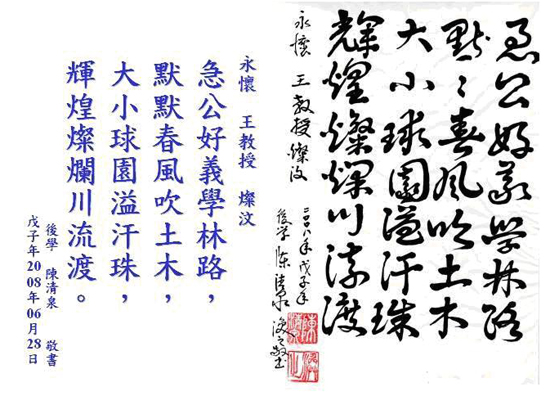 永懷 王教授 燦汶
急公好義學林路，
默默春風吹土木，
大小球園溢汗珠，
輝煌燦爛川流渡。
後學 陳清泉 敬書
戊子年2008年06月28日
急公好義學林路
默々春風吹土木
大小球園溢汗珠
輝煌燦爛川流渡
永懷 王教授燦汶
二〇〇八年戊子年
後学 陈清泉